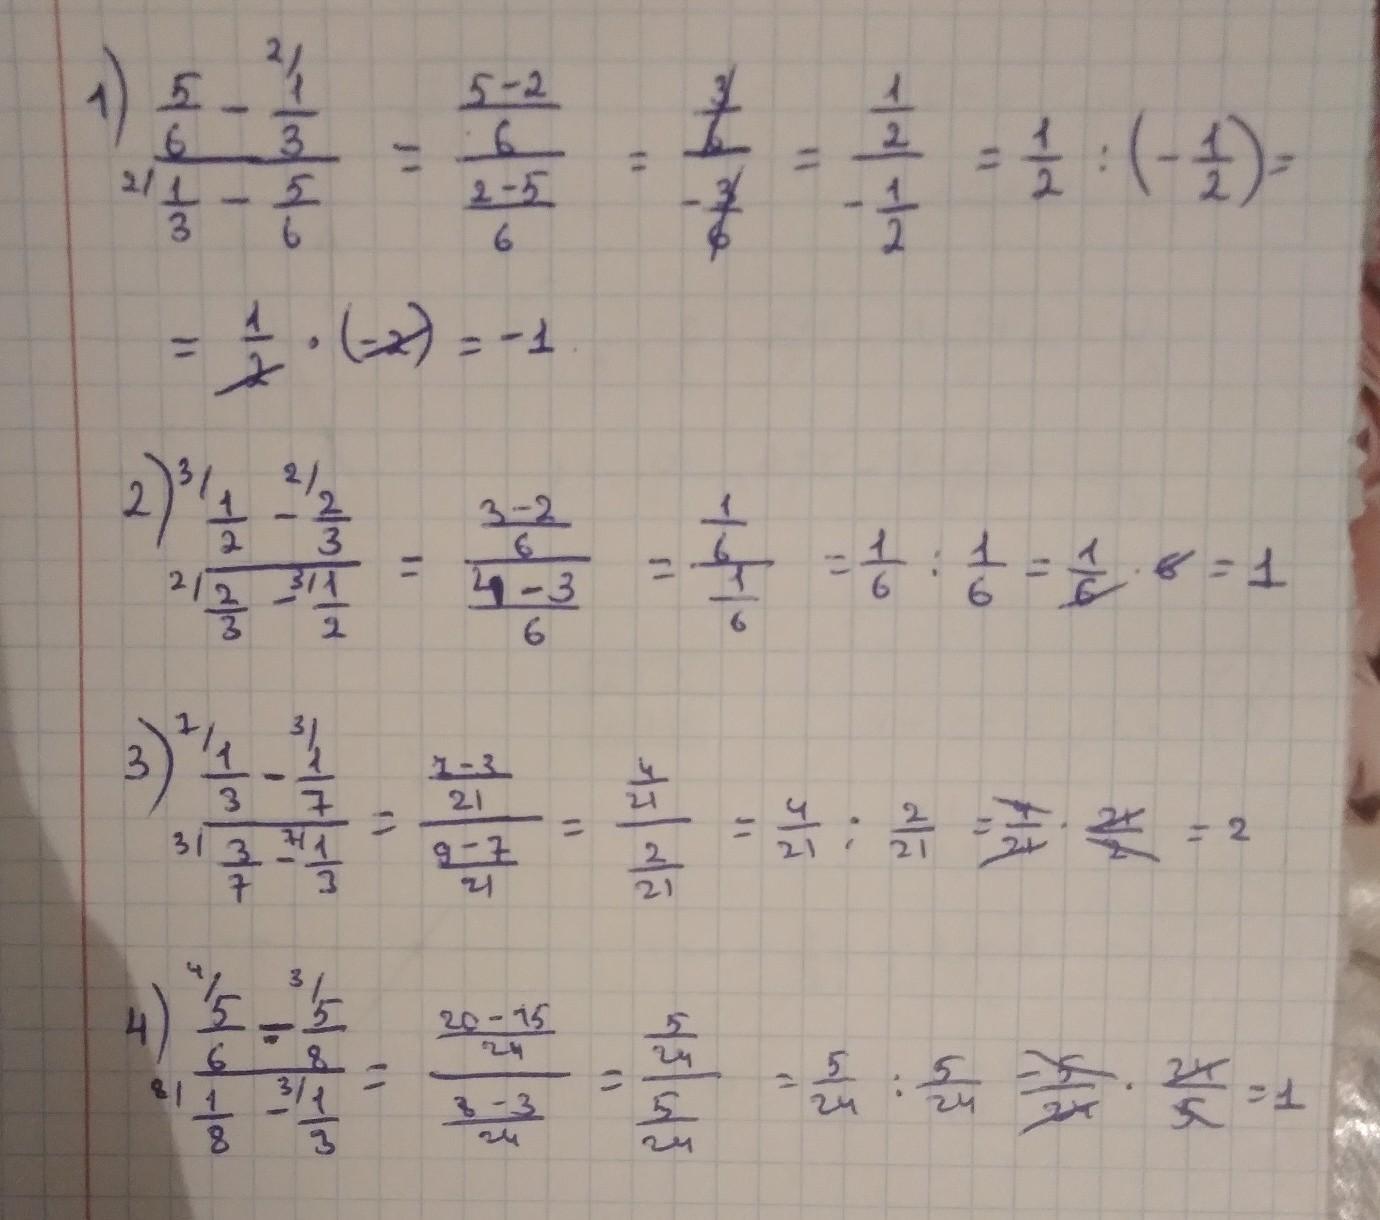 1) (5/6 - 2/ 1/3) / (2/ 1/3 - 5/6) = ((5-2)/6) / ((2-5)/6) = (3/6) / (-3/6) = (1/2) / (-1/2) = 1/2 : (-1/2) =
= 1/2 · (-2) = -1
2) (3/ 1/2 - 2/ 2/3) / (2/ 2/3 - 3/ 1/2) = ((3-2)/6) / ((4-3)/6) = (1/6) / (1/6) = 1/6 : 1/6 = 1/6 · 6 = 1
3) (7/ 1/3 - 3/ 1/7) / (3/ 3/7 - 7/ 1/3) = ((7-3)/21) / ((9-7)/21) = (4/21) / (2/21) = 4/21 : 2/21 = 4/21 · 21/2 = 2
4) (4/ 5/6 - 3/ 5/8) / (8/ 1/8 - 3/ 1/3) = ((20-15)/24) / ((8-3)/24) = (5/24) / (5/24) = 5/24 : 5/24 5/24 · 24/5 = 1